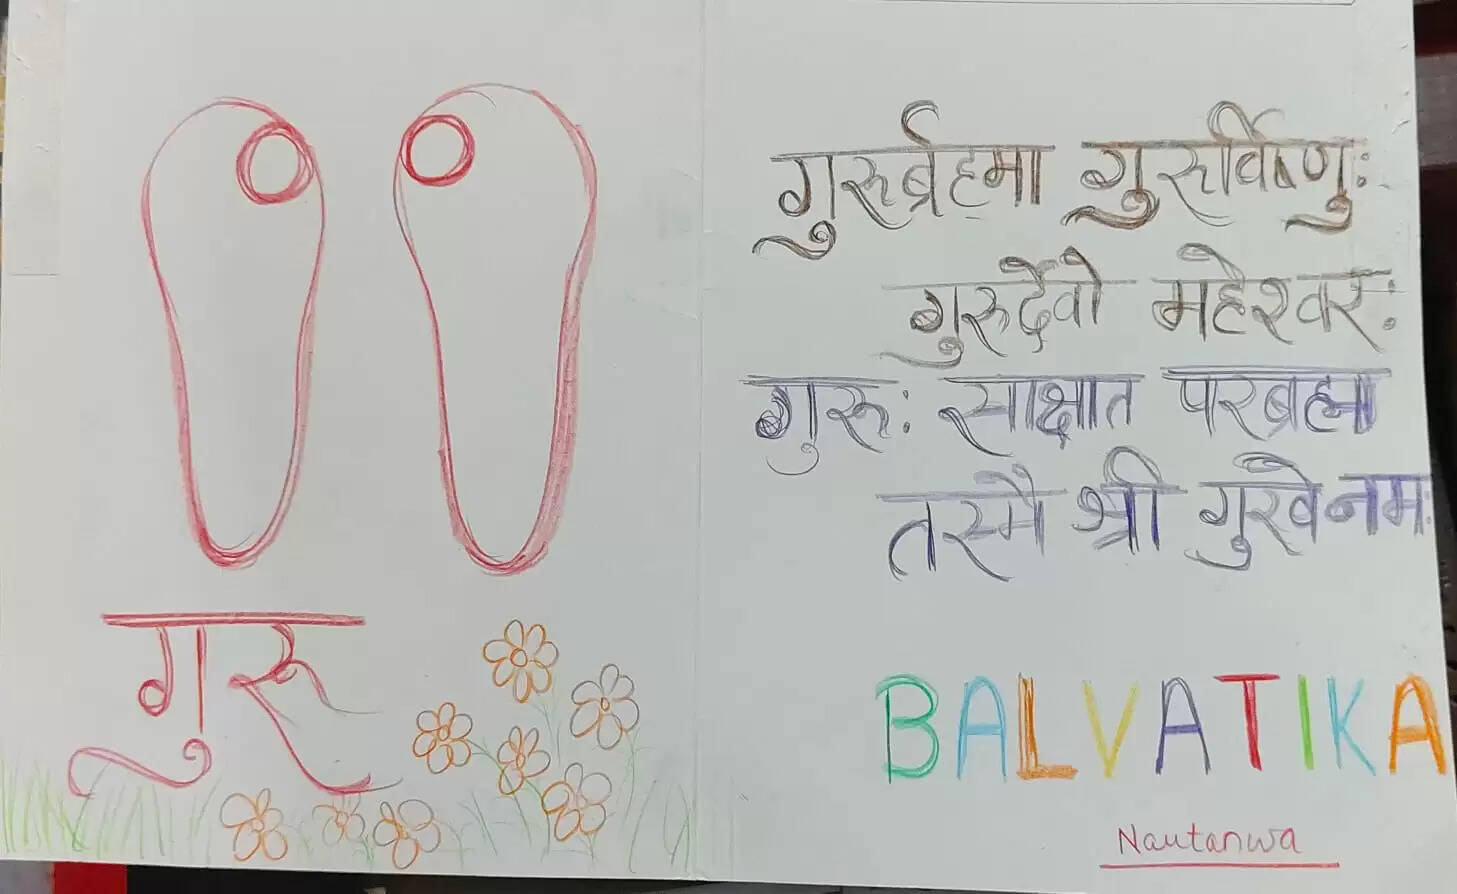 गुरु
गुरुर्ब्रहमा गुरुर्विष्णु:
गुरुर्देवो महेश्वर:
गुरु: साक्षात परब्रह्मा
तस्मै श्री गुरवे नम:
BALVATIKA
Nautanwa